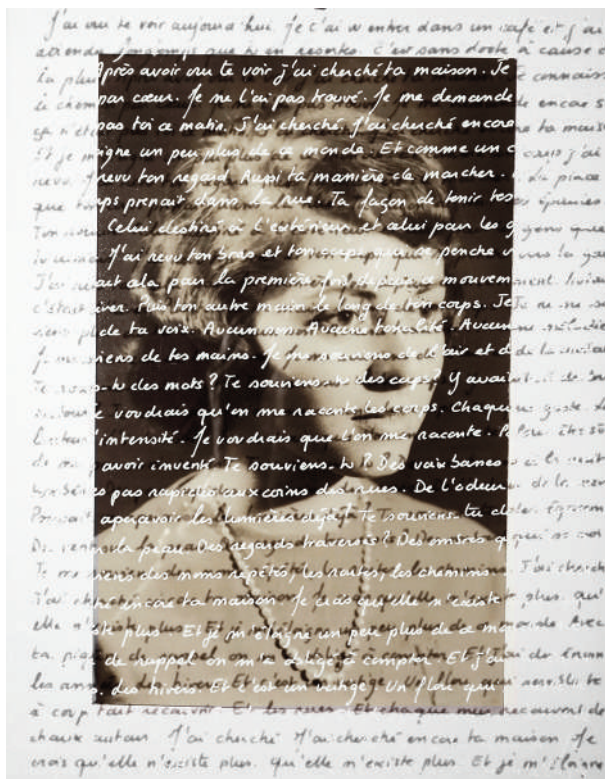 J'ai cru te voir aujourd'hui. Je t'ai vu entrer dans un café et j'ai
attendu longtemps que tu en ressortes. C'est sans doute à cause de
la pluie Après avoir cru te voir j'ai cherché ta maison. Je connais
le chemin par cœur. Je ne l'ai pas trouvé. Je me demande encore
pas toi ce matin. J'ai cherché. J'ai cherché encore ta maison
Et je m'éloigne un peu plus de ce monde. Et comme un j'ai
revu. J'ai revu ton regard. Aussi ta manière de marcher. La place
que ton corps prenait dans la rue. Ta façon de tenir tes
Celui destiné à l'extérieur et celui pour les
J'ai revu ton bras et ton corps qui se penche vers
cela pour la première fois depuis ce mouvement.
c'était hiver. Puis ton autre main le long de ton corps. Je ne me
plus de ta voix. Aucun son. Aucune tonalité. Aucune mélodie
Je me souviens de tes mains. Je me souviens de l'air et de la
Te souviens-tu des mots ? Te souviens-tu des corps ? Y avait-il
Je voudrais qu'on me raconte les corps. Chaque geste.
l'intensité. Je voudrais que l'on me raconte.
avoir inventé. Te souviens-tu ? Des voix basses
pas rapides aux coins des rues. De l'odeur de la
apercevoir les lumières déjà ? Te souviens-tu
la peau. Des regards traversés ? Des ombres qui
Je me souviens des noms répétés, les routes, les chemins. J'ai cherché
J'ai cherché encore ta maison. Je crois qu'elle n'existe plus. Qu'
elle n'existe plus. Et je m'éloigne un peu plus de ce monde. Avec
ta de rappel on m'a obligé à compter. Et j'ai dû
les années, des hivers. Et c'est un vertige. Un flou qui
à coup tout recouvrir. Et les rues. Et chaque mur recouvrait de
chaux J'ai cherché. J'ai cherché encore ta maison. Je
crois qu'elle n'existe plus. Qu'elle n'existe plus. Et je m'éloigne